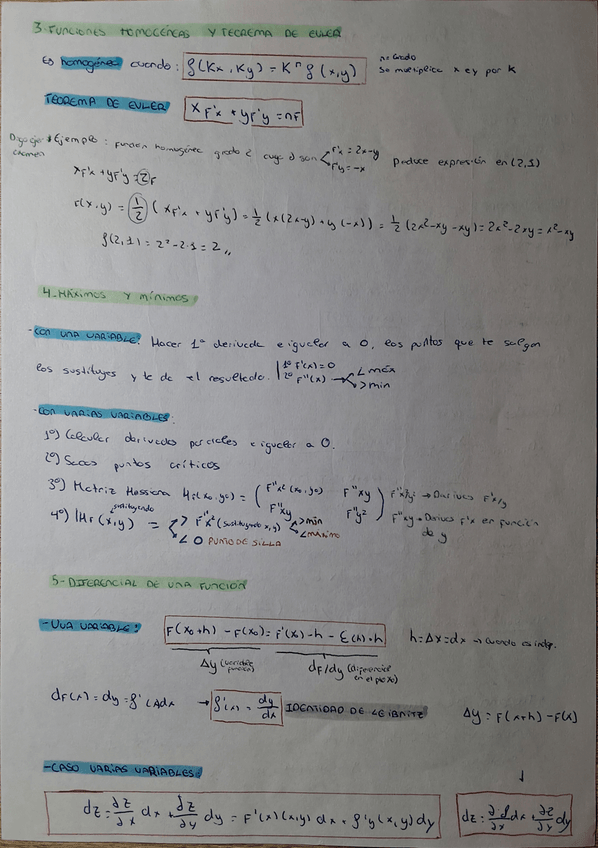 3. FUNCIONES HOMOGÉNEAS Y TEOREMA DE EULER
Es homogénea cuando: f(Kx, Ky) = Kⁿ f(x,y) n= Grado
Se multiplica x e y por K
TEOREMA DE EULER xF'x + yF'y = nF
Ejemplo: función homogénea grado 2 cuya ∂ son F'x = 2x-y
F'y = -x
produce expresión en (2,1)
xF'x + yF'y = 2F
F(x,y) = 1/2 (xF'x + yF'y) = 1/2 (x(2x-y) + y(-x)) = 1/2 (2x²-xy-xy) = 2x²-2xy = x²-xy
f(2,1) = 2²-2·1 = 2,,
4. MÁXIMOS Y MÍNIMOS:
-CON UNA VARIABLE: Hacer 1º derivada e igualar a 0, los puntos que te salgan
los sustituyes y te da el resultado. 1º F'(x)=0
2º F''(x) < máx
> min
-CON VARIAS VARIABLES:
1º) Calcular derivadas parciales e igualar a 0.
2º) Sacas puntos críticos
3º) Matriz Hessiana Hf(x0,y0) = ( F''x²(x0,y0) F''xy
F''xy F''y² )
F''x²/y² → Derivas F'x/y
F''xy → Derivas F'x en función
de y
4º) |Hf(x,y)| = sustituyendo
> F''x² (sustituyendo x,y) > min
< MÁXIMO
< 0 PUNTO DE SILLA
5- DIFERENCIAL DE UNA FUNCION
-UNA VARIABLE: F(x0+h) - F(x0) = F'(x)-h - ε(h)·h h=Δx=dx → cuando es indep.
Δy (variable función) dF/dy (diferencial en el pto x0)
dF(x) = dy = f'(x)dx → f'(x) = dy/dx IDENTIDAD DE LEIBNITZ Δy = F(x+h) - F(x)
-CASO VARIAS VARIABLES:
dz = ∂z/∂x dx + ∂z/∂y dy = F'(x)(x,y) dx + f'y(x,y) dy dz = ∂f/∂x dx + ∂z/∂y dy